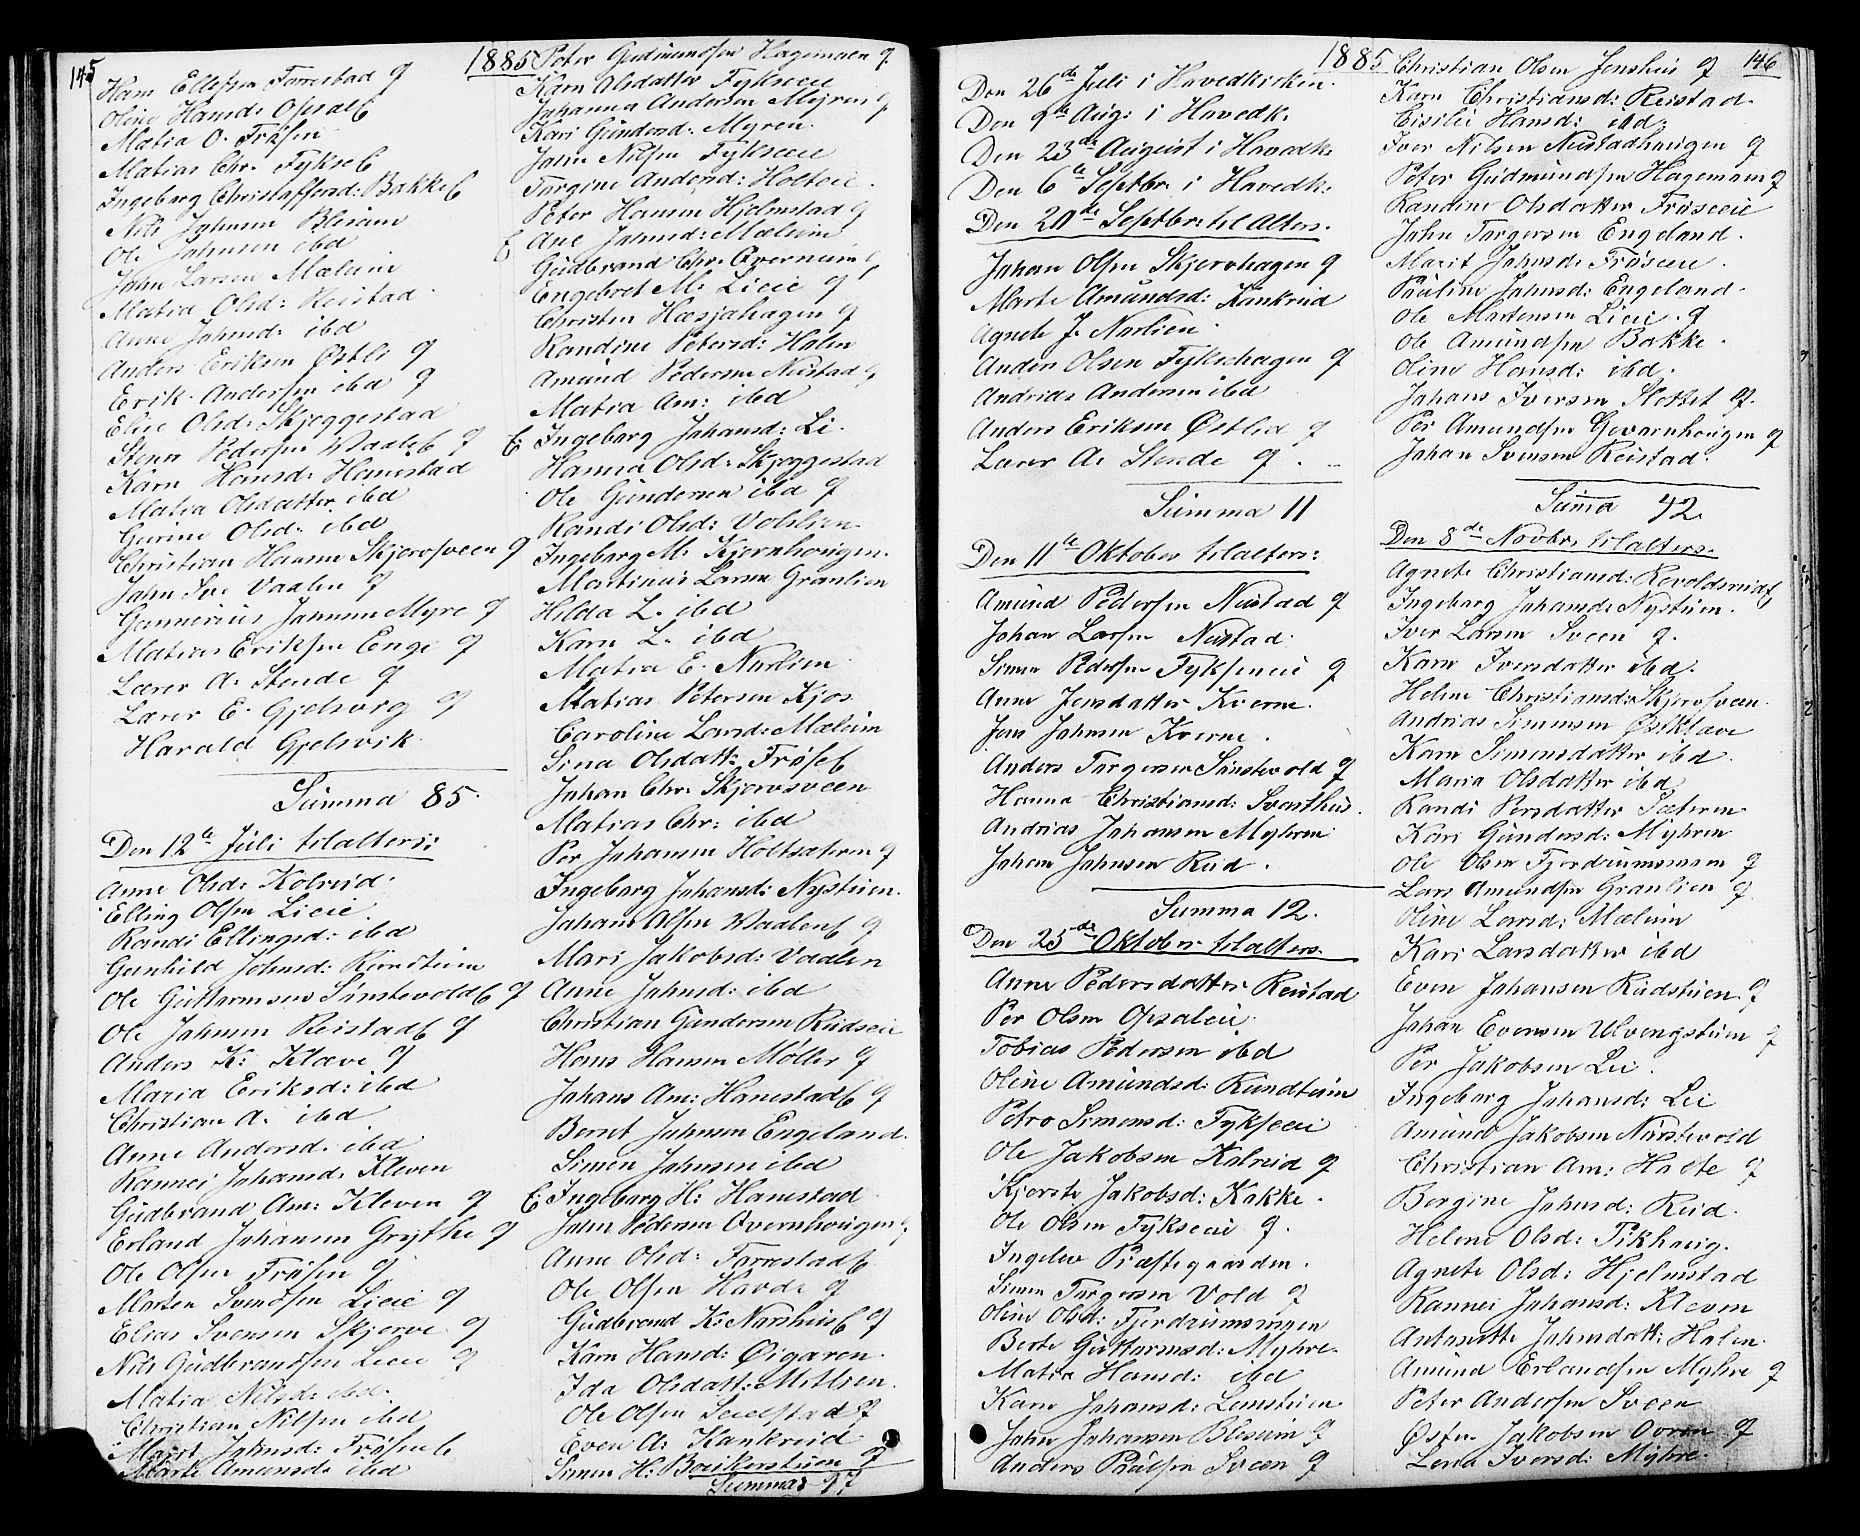 145
1885
Hans Ellefsen Forrestad
Oline Hansd: Opsal
Matia O. Frøsen
Matias Chr. Fykse
Ingeborg Christoffersd: Bakke
Nils Johnsen Blesum
Ole Johnsen ibd
John Larsen Mælum
Matia Olsd: Reistad
Anne Johnsd: ibd
Anders Eriksen Østli
Erik Andersen ibd
Elise Olsd: Skjeggestad
Stener Pedersen Vaale
Karn Hansd: Hanestad
Matia Olsdatter ibd
Gurine Olsd: ibd
Christian Hansen Skjervsveen
John Sve Vaalen
Gunnerius Johnsen Myre
Matias Eriksen Enge
Lærer A. Stende
Lærer E. Gjelsvig
Harald Gjelsvik
Summa 85.
Den 12te Juli tilalters:
Anne Olsd: Kolreid
Elling Olsen Lieie
Randi Ellingsd: ibd
Gunhild Johnsd: Rundtuim
Ole Guttormsen Sinstevold
Ole Johnsen Reistad
Anders K: Klæve
Maria Eriksd: ibd
Christian A. ibd
Anne Andersd. ibd
Rannei Johansd. Kleven
Gudbrand Am: Kleven
Erland Johansen Grythe
Ole Olsen Frøsen
Morten Svendsen Lieie
Elias Svensen Skjerve
Nils Gudbrandsen Lieie
Matia Nilsd: ibd.
Christian Nilsen ibd
Marit Johnsd: Frøsen
Marte Amundsd: ibd
Peter Gudmundsen Hagemoen
Karn Olsdatter Fykseie
Johanna Andersen Myren
Kari Gundersd: Myren.
John Nilsen Fykseie
Torgine Andersd: Holteie.
Peter Hansen Hjelmstad
Ane Johnsd: Mælum
Gudbrand Chr. Overnuim
Engebret M. Lieie
Christen Hæsjahagen
Randine Petersd: Halen
Amund Pedersen Neistad
Matia Am: ibd
Ingeborg Johansd: Li.
Hanna Olsd: Skjeggestad
Ole Gundersen ibd
Randi Olsd: Vollien
Ingeborg M. Kjernhougen.
Martinus Larsen Granlien
Hilda L. ibd
Karn L. ibd
Matia E. Nærlien
Matias Petersen Kjos
Caroline Larsd: Mælum
Sina Olsdatt: Frøse
Johan Chr. Skjervsveen
Matias Chr: ibd
Per Johansen Holtsæteren
Ingeborg Johansd: Nystuen.
Johans Olsen Waalen
Mari Jakobsd: Vaalen
Anne Johnsd: ibd
Christian Gundersen Rudseie
Hans Hansen Møller
Johans Am: Hanestad
Bernt Johnsen Engeland.
Simen Johnsen ibd
Ingeborg H: Hanestad
John Pedersen Overnhougen
Anne Olsd: Forrestad
Ole Olsen Havde
Gudbrand K: Narshus
Karn Hansd: Øigaren.
Ida Olsdatt: Mitlien.
Ole Olsen Seielstad
Even A: Kankreid
Simen H: Bræikerstuen
Summa 97
1885
146
Den 26de Juli i Havedkirken.
Den 9de Aug: i Havedk.
Den 23de August i Havedk.
Den 6te Septbr. i Havedk.
Den 20de Septbr. til Alters.
Johan Olsen Skjervhagen
Marte Amundsd: Kankrud
Agnete J. Narlien.
Anders Olsen Fyksehagen
Andrias Andersen ibd
Anders Eriksen Østlia
Lærer A. Stende
Summa 11
Den 11te Oktober tilalters:
Amund Pedersen Neistad
Johan Larsen Neistad.
Simen Pedersen Fykseneie
Anne Jensdatter Kverne.
Jens Johnsen Kverne.
Anders Torgersen Sinstevold
Hanna Christiansd: Svarthus.
Andrias Johansen Myhren
Johan Johnsen Rud.
Summa 12.
Den 25de Oktober tilalters.
Anne Pedersdatter Reistad
Per Olsen Opsaleie
Tobias Pedersen ibd
Oline Amundsd: Rundtuim
Petro Simensd: Fykseie
Ole Jakobsen Kolreid
Kjersti Jakobsd: Kakke.
Ole Olsen Fykseie
Ingelev Præstegaarden.
Simen Torgersen Vold
Oline Olsd: Fjerdrumsmoen
Berte Guttormsd: Myhre.
Matia Hansd: ibd
Karn Johansd: Lemstuen
John Johansen Blesum
Anders Paulsen Sveen
Christian Olsen Jenshus
Karn Christiansd: Reistad.
Cisilie Hansd: ibd.
Iver Nilsen Neistadhougen
Peter Gudmundsen Hagemoen
Randine Olsdatter Frøseie
John Torgersen Engeland.
Marit Johnsd: Frøseie.
Pauline Johnsd: Engeland.
Ole Martensen Lieie.
Ole Amundsen Bakke.
Oline Hansd: ibd.
Johans Iversen Slettet
Per Amundsen Gevarnhougen
Johan Svensen Reistad.
Suma 42.
Den 8de Novbr. tilalters.
Agnete Christiansd: Revoldsmidt
Ingeborg Johansd: Nystuen.
Iver Larsen Sveen
Karn Iversdatter ibd.
Helene Christiansd: Skjervsveen.
Andrias Simensen Østklæve
Karn Simensdatter ibd.
Maria Olsdatter ibd
Randi Persdatter Sæteren
Kari Gundersd: Myhren
Ole Olsen Fjerdrumsmoen
Lars Amundsen Granlien
Oline Larsd: Mælum
Kari Larsdatter ibd
Even Johansen Rudstuen.
Johan Evensen Ulvengstuen
Per Jakobsen Lie.
Ingeborg Johansd: Lie
Amund Jakobsen Nørstevold
Christian Am: Holte
Bergine Johnsd: Rud.
Helene Olsd: Pikhaug.
Agnete Olsd: Hjelmstad
Rannei Johansd: Kleven
Antonette Johnsdatt: Halen.
Amund Erlandsen Myhre
Peter Andersen Sveen
Østen Jakobsen Ovren
Lena Iversd: Myhre.